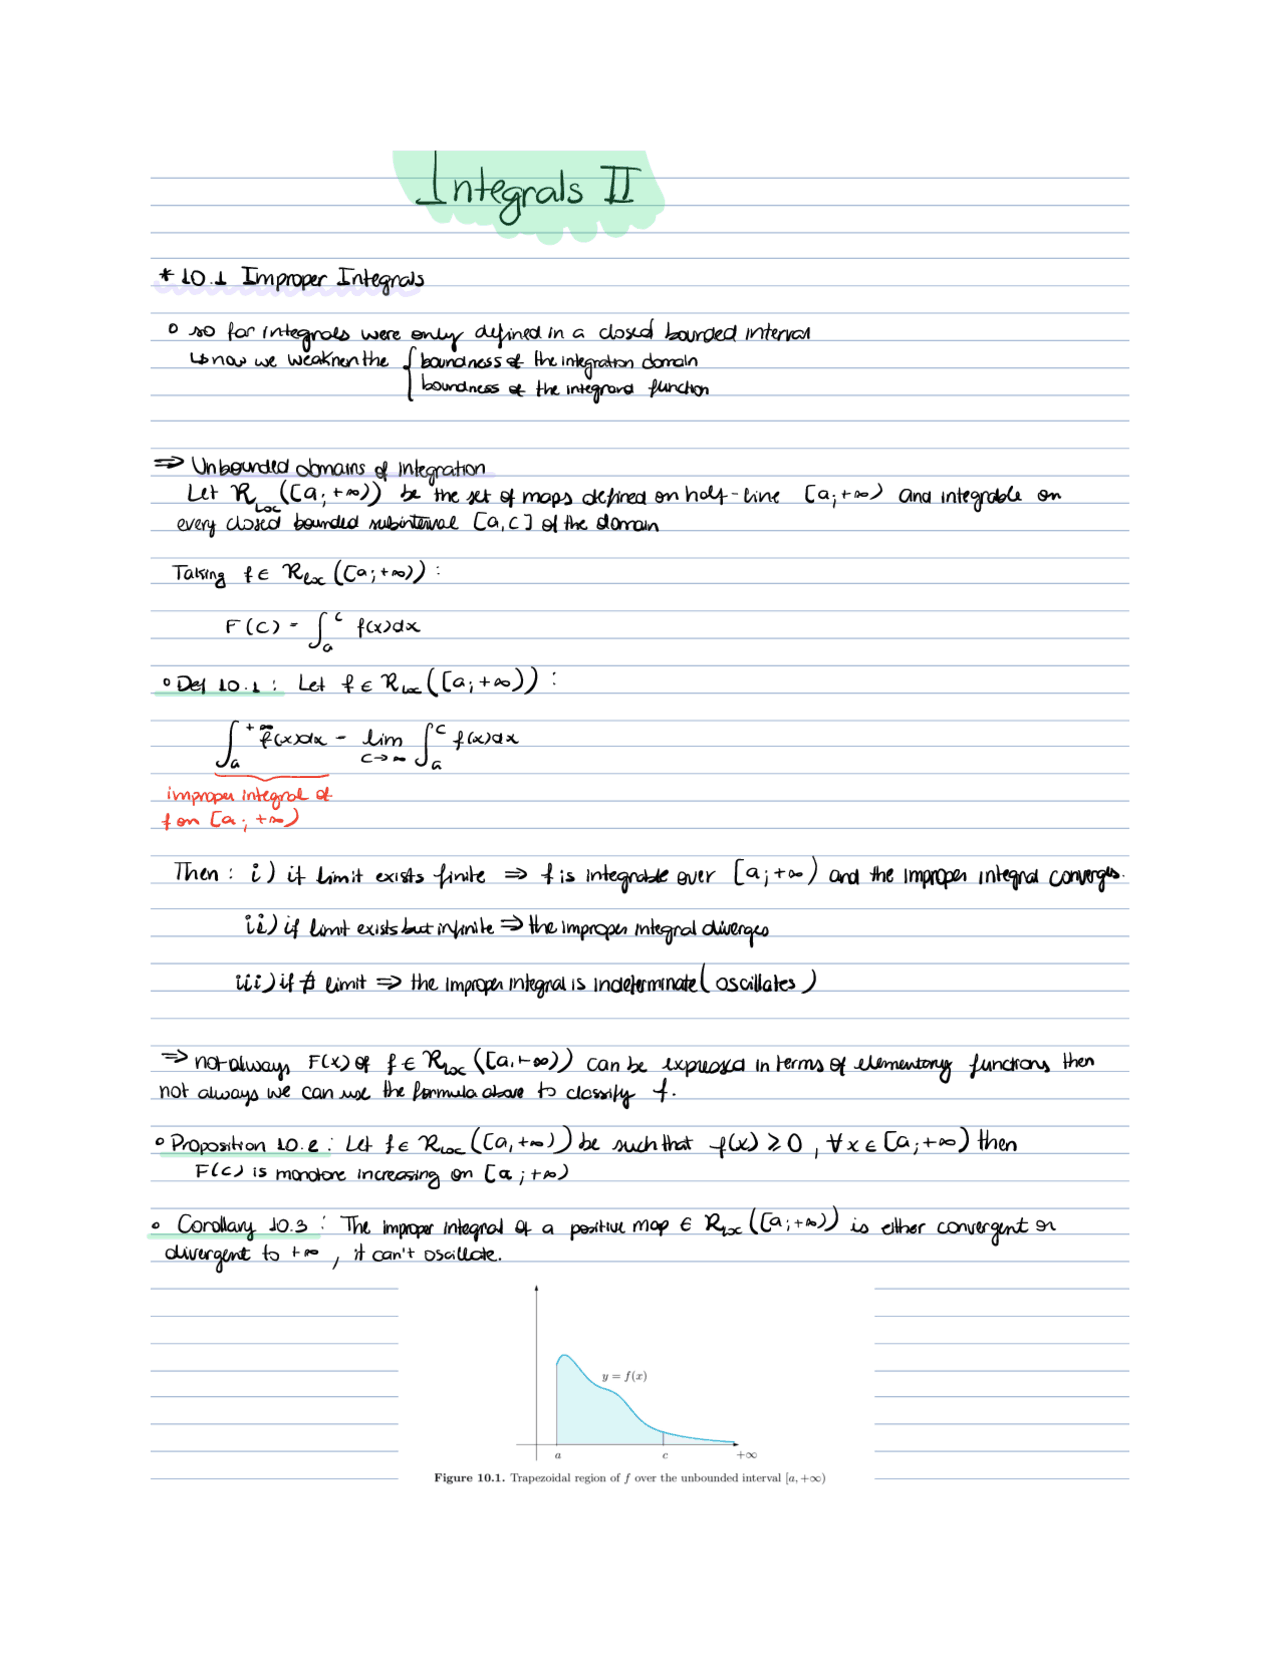 Integrals II
* 10.1 Improper Integrals
° so far integrals were only defined in a closed bounded interval
↳ now we weaknen the { boundness of the integration domain
boundness of the integrand function
⇒ Unbounded domains of integration
Let R_Loc ([a;+∞)) be the set of maps defined on half-line [a;+∞) and integrable on
every closed bounded subinterval [a,c] of the domain
Taking f ∈ R_loc ([a;+∞)) :
F(c) = ∫_a^c f(x)dx
° Def 10.1 : Let f ∈ R_loc ([a;+∞)) :
∫_a^+∞ f(x)dx = lim_c→∞ ∫_a^c f(x)dx
improper integral of
f on [a;+∞)
Then : i) if limit exists finite ⇒ f is integrable over [a;+∞) and the improper integral converges.
ii) if limit exists but infinite ⇒ the improper integral diverges
iii) if ∄ limit ⇒ the improper integral is indeterminate (oscillates)
⇒ not always F(x) of f ∈ R_loc ([a,+∞)) can be expressed in terms of elementary functions then
not always we can use the formula above to classify f.
° Proposition 10.2 : Let f ∈ R_loc ([a,+∞)) be such that f(x) ≥ 0 , ∀x ∈ [a;+∞) then
F(c) is monotone increasing on [a;+∞)
° Corollary 10.3 : The improper integral of a positive map ∈ R_loc ([a;+∞)) is either convergent or
divergent to +∞ , it can't oscillate.
y = f(x)
a c +∞
Figure 10.1. Trapezoidal region of f over the unbounded interval [a, +∞)